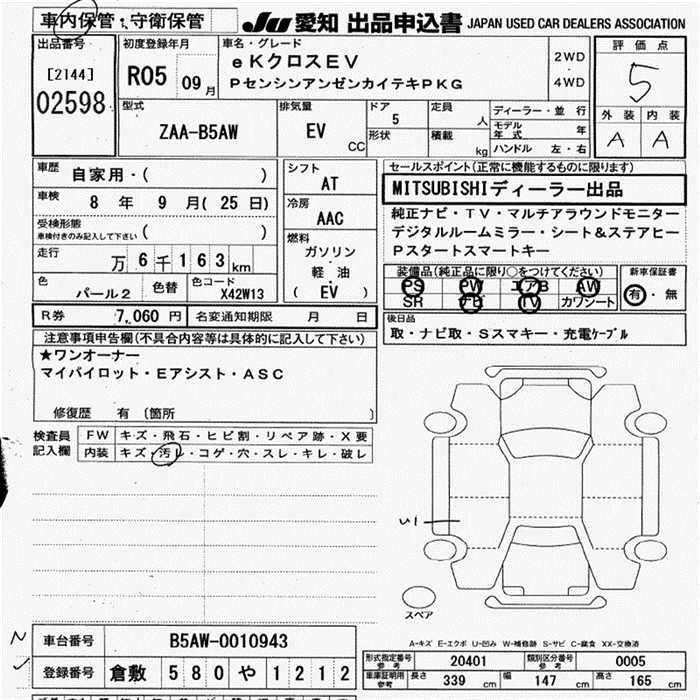 車内保管・守衛保管
JU 愛知 出品申込書 JAPAN USED CAR DEALERS ASSOCIATION
出品番号
[2144]
02598
初度登録年月
R05 09月
車名・グレード
eKクロスEV
PセンシンアンゼンカイテキPKG
2WD
・
4WD
評価点
5
外装 内装
A A
型式
ZAA-B5AW
排気量
EV
CC
ドア
5
形状
定員
人
積載
kg
ディーラー・並行
モデル年式 年
ハンドル 左・右
車歴
自家用・( )
車検
8年 9月( 25日)
受検形態
車検付きのみ記入して下さい ( )
走行
万6千163km
色
パール2
色替
色コード
X42W13
シフト
AT
冷房
AAC
燃料
ガソリン
軽油
( EV )
セールスポイント(正常に機能するものに限ります)
MITSUBISHIディーラー出品
純正ナビ・TV・マルチアラウンドモニター
デジタルルームミラー・シート&ステアヒー
Pスタートスマートキー
装備品(純正品に限り○をつけてください)
PS PW エアB AW
SR ナビ TV カワシート
新車保証書
有・無
R券 7,060円 名変通知期限 月 日
後日品
取・ナビ取・Sスマキー・充電ケーブル
注意事項申告欄(不具合内容等は具体的に記入して下さい)
★ワンオーナー
マイパイロット・Eアシスト・ASC
修復歴 有 〔箇所 〕
検査員記入欄
FW キズ・飛石・ヒビ割・リペア跡・X要
内装 キズ・汚レ・コゲ・穴・スレ・キレ・破レ
U1
スペア
A-キズ E-エクボ U-凹み W-補修跡 S-サビ C-腐食 XX-交換済
車台番号 B5AW-0010943
登録番号 倉敷 580 や 1212
形式指定番号 参考 20401 類別区分番号 参考 0005
車庫証明用 参考 長さ 339cm 幅 147cm 高さ 165cm